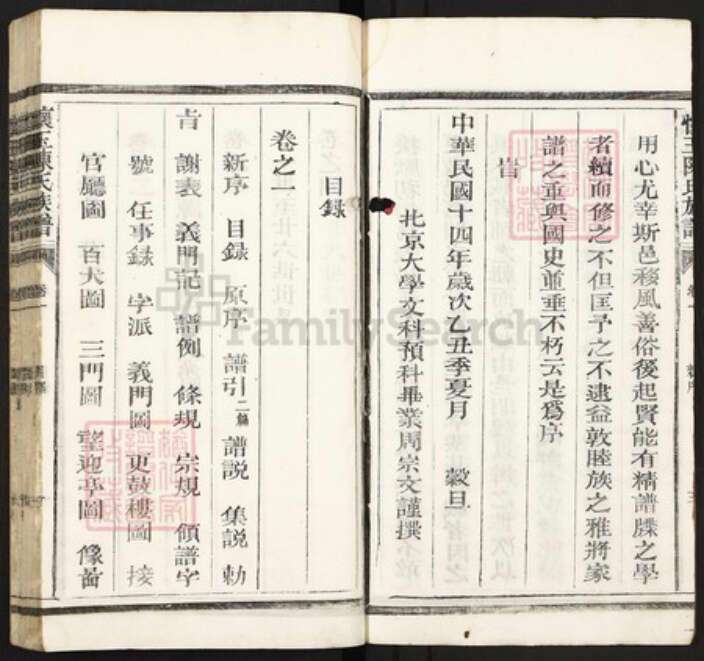 用心尤幸斯邑移風善俗後起賢能有精譜牒之學
者續而修之不但匡予之不逮益敦睦族之雅將家
譜之重與國史並垂不朽云是爲序
旹
中華民國十四年歲次乙丑季夏月 穀旦
北京大學文科預科畢業周宗文謹撰
目録
卷之一
新序 目録 原序 譜引二編 譜説 集説 勅
旨 謝表 義門記 譜例 條規 宗規 領譜字
號 任事録 字派 義門圖 更鼓樓圖 接
官廳圖 百犬圖 三門圖 望迎亭圖 像
陳氏族譜
FamilySearch